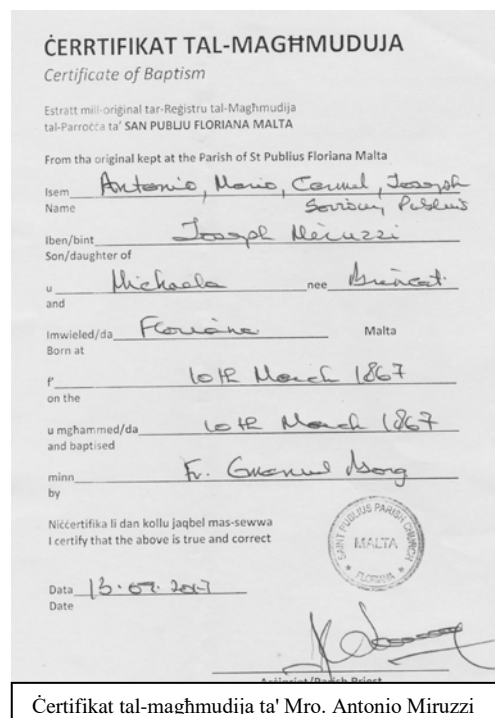 ĊERRTIFIKAT TAL-MAGĦMUDUJA
Certificate of Baptism
Estratt mill-original tar-Reġistru tal-Magħmudija
tal-Parroċċa ta' SAN PUBLJU FLORIANA MALTA
From tha original kept at the Parish of St Publius Floriana Malta
Isem Antonio, Mario, Carmel, Joseph
Name Publius
Iben/bint Joseph Miruzzi
Son/daughter of
u Michaela nee Brincat
and
Imwieled/da Floriana Malta
Born at
f' 10th March 1867
on the
u mgħammed/da 10th March 1867
and baptised
minn Fr. Emanuel
by
Niċċertifika li dan kollu jaqbel mas-sewwa
I certify that the above is true and correct
SAINT PUBLIUS PARISH CHURCH
MALTA
FLORIANA
Data
Date
Arċipriet/Parish Priest
Ċertifikat tal-magħmudija ta' Mro. Antonio Miruzzi